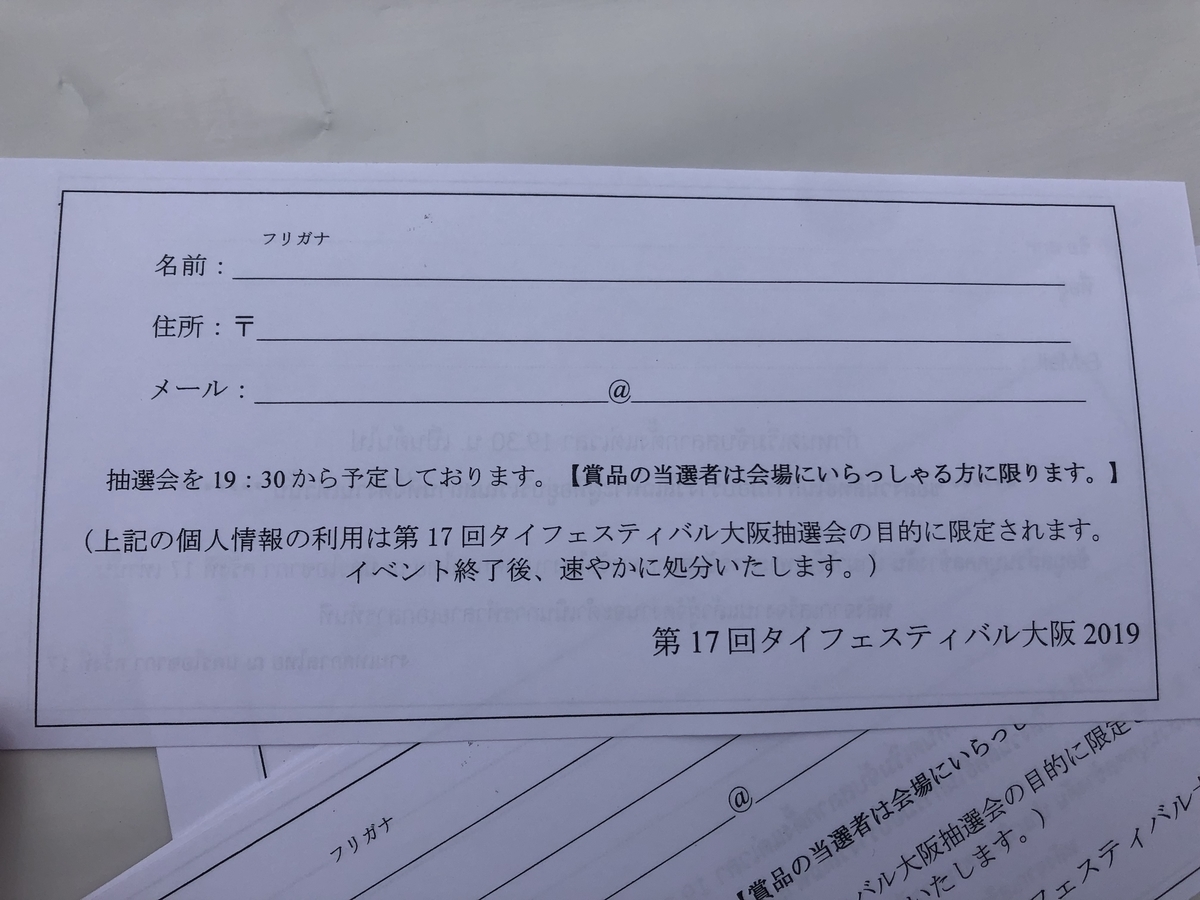 フリガナ
名前：
住所：〒
メール：@
抽選会を19：30から予定しております。【賞品の当選者は会場にいらっしゃる方に限ります。】
（上記の個人情報の利用は第17回タイフェスティバル大阪抽選会の目的に限定されます。
イベント終了後、速やかに処分いたします。）
第17回タイフェスティバル大阪2019
フリガナ
@
【賞品の当選者は会場にいらっし
バル大阪抽選会の目的に限定
いたします。）
フェスティバル